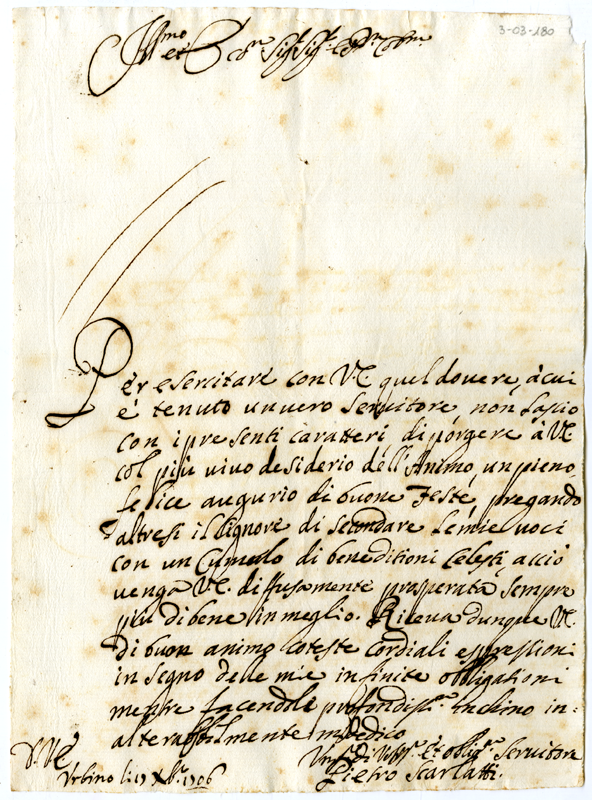 3-03-180
Ill.mo et Ecc.mo Sig.r Sig.r e Pron Col.mo
Per esercitare con V.E. quel dovere, à cui
è tenuto un vero servitore, non lascio
con i presenti caratteri, di pórgere à V.E.
col più vivo desiderio dell'Animo, un pieno
felice augurio di buone Feste, pregando
altresi il Signore di secondare le mie voci
con un Cumulo di beneditioni Celesti, acciò
venga V.E. diffusamente prosperata sempre
più di bene in meglio. Riceva dunque V.E.
di buon animo coteste cordiali espressioni
in segno delle mie infinite obligationi
mentre facendole profondiss.o inchino in=
alterabilmente mi dedico
D. V.E.
Urbino li 17 Xbr. 1706
Um. Div. et oblig. Servitore
Pietro Scarlatti.